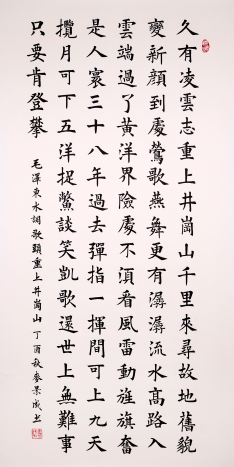 久有凌雲志重上井崗山千里來尋故地舊貌
變新顔到處鶯歌燕舞更有潺潺流水高路入
雲端過了黃洋界險處不湏看風雷動旌旗奮
是人寰三十八年過去彈指一揮間可上九天
攬月可下五洋捉鱉談笑凱歌還世上無難事
只要肯登攀
毛澤東水調歌頭重上井崗山 丁酉秋麥景成